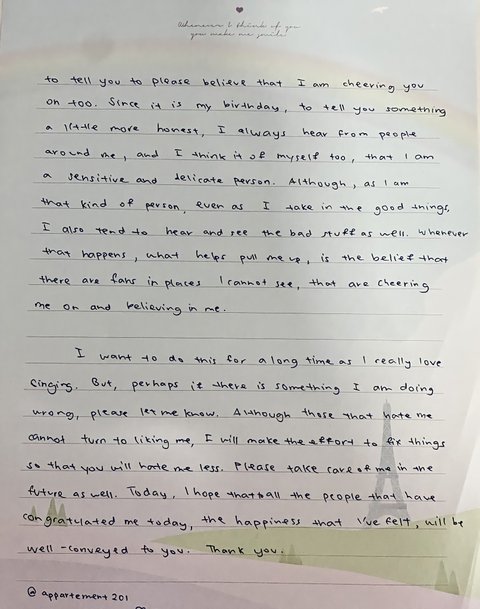 Whenever I think of you
you make me smile
to tell you to please believe that I am cheering you
on too. Since it is my birthday, to tell you something
a little more honest, I always hear from people
around me, and I think it of myself too, that I am
a sensitive and delicate person. Although, as I am
that kind of person, even as I take in the good things,
I also tend to hear and see the bad stuff as well. Whenever
that happens, what helps pull me up, is the belief that
there are fans in places I cannot see, that are cheering
me on and believing in me.
I want to do this for a long time as I really love
singing. But, perhaps if there is something I am doing
wrong, please let me know. Although those that hate me
cannot turn to liking me, I will make the effort to fix things
so that you will hate me less. Please take care of me in the
future as well. Today, I hope that all the people that have
congratulated me today, the happiness that I've felt, will be
well-conveyed to you. Thank you.
@appartement 201